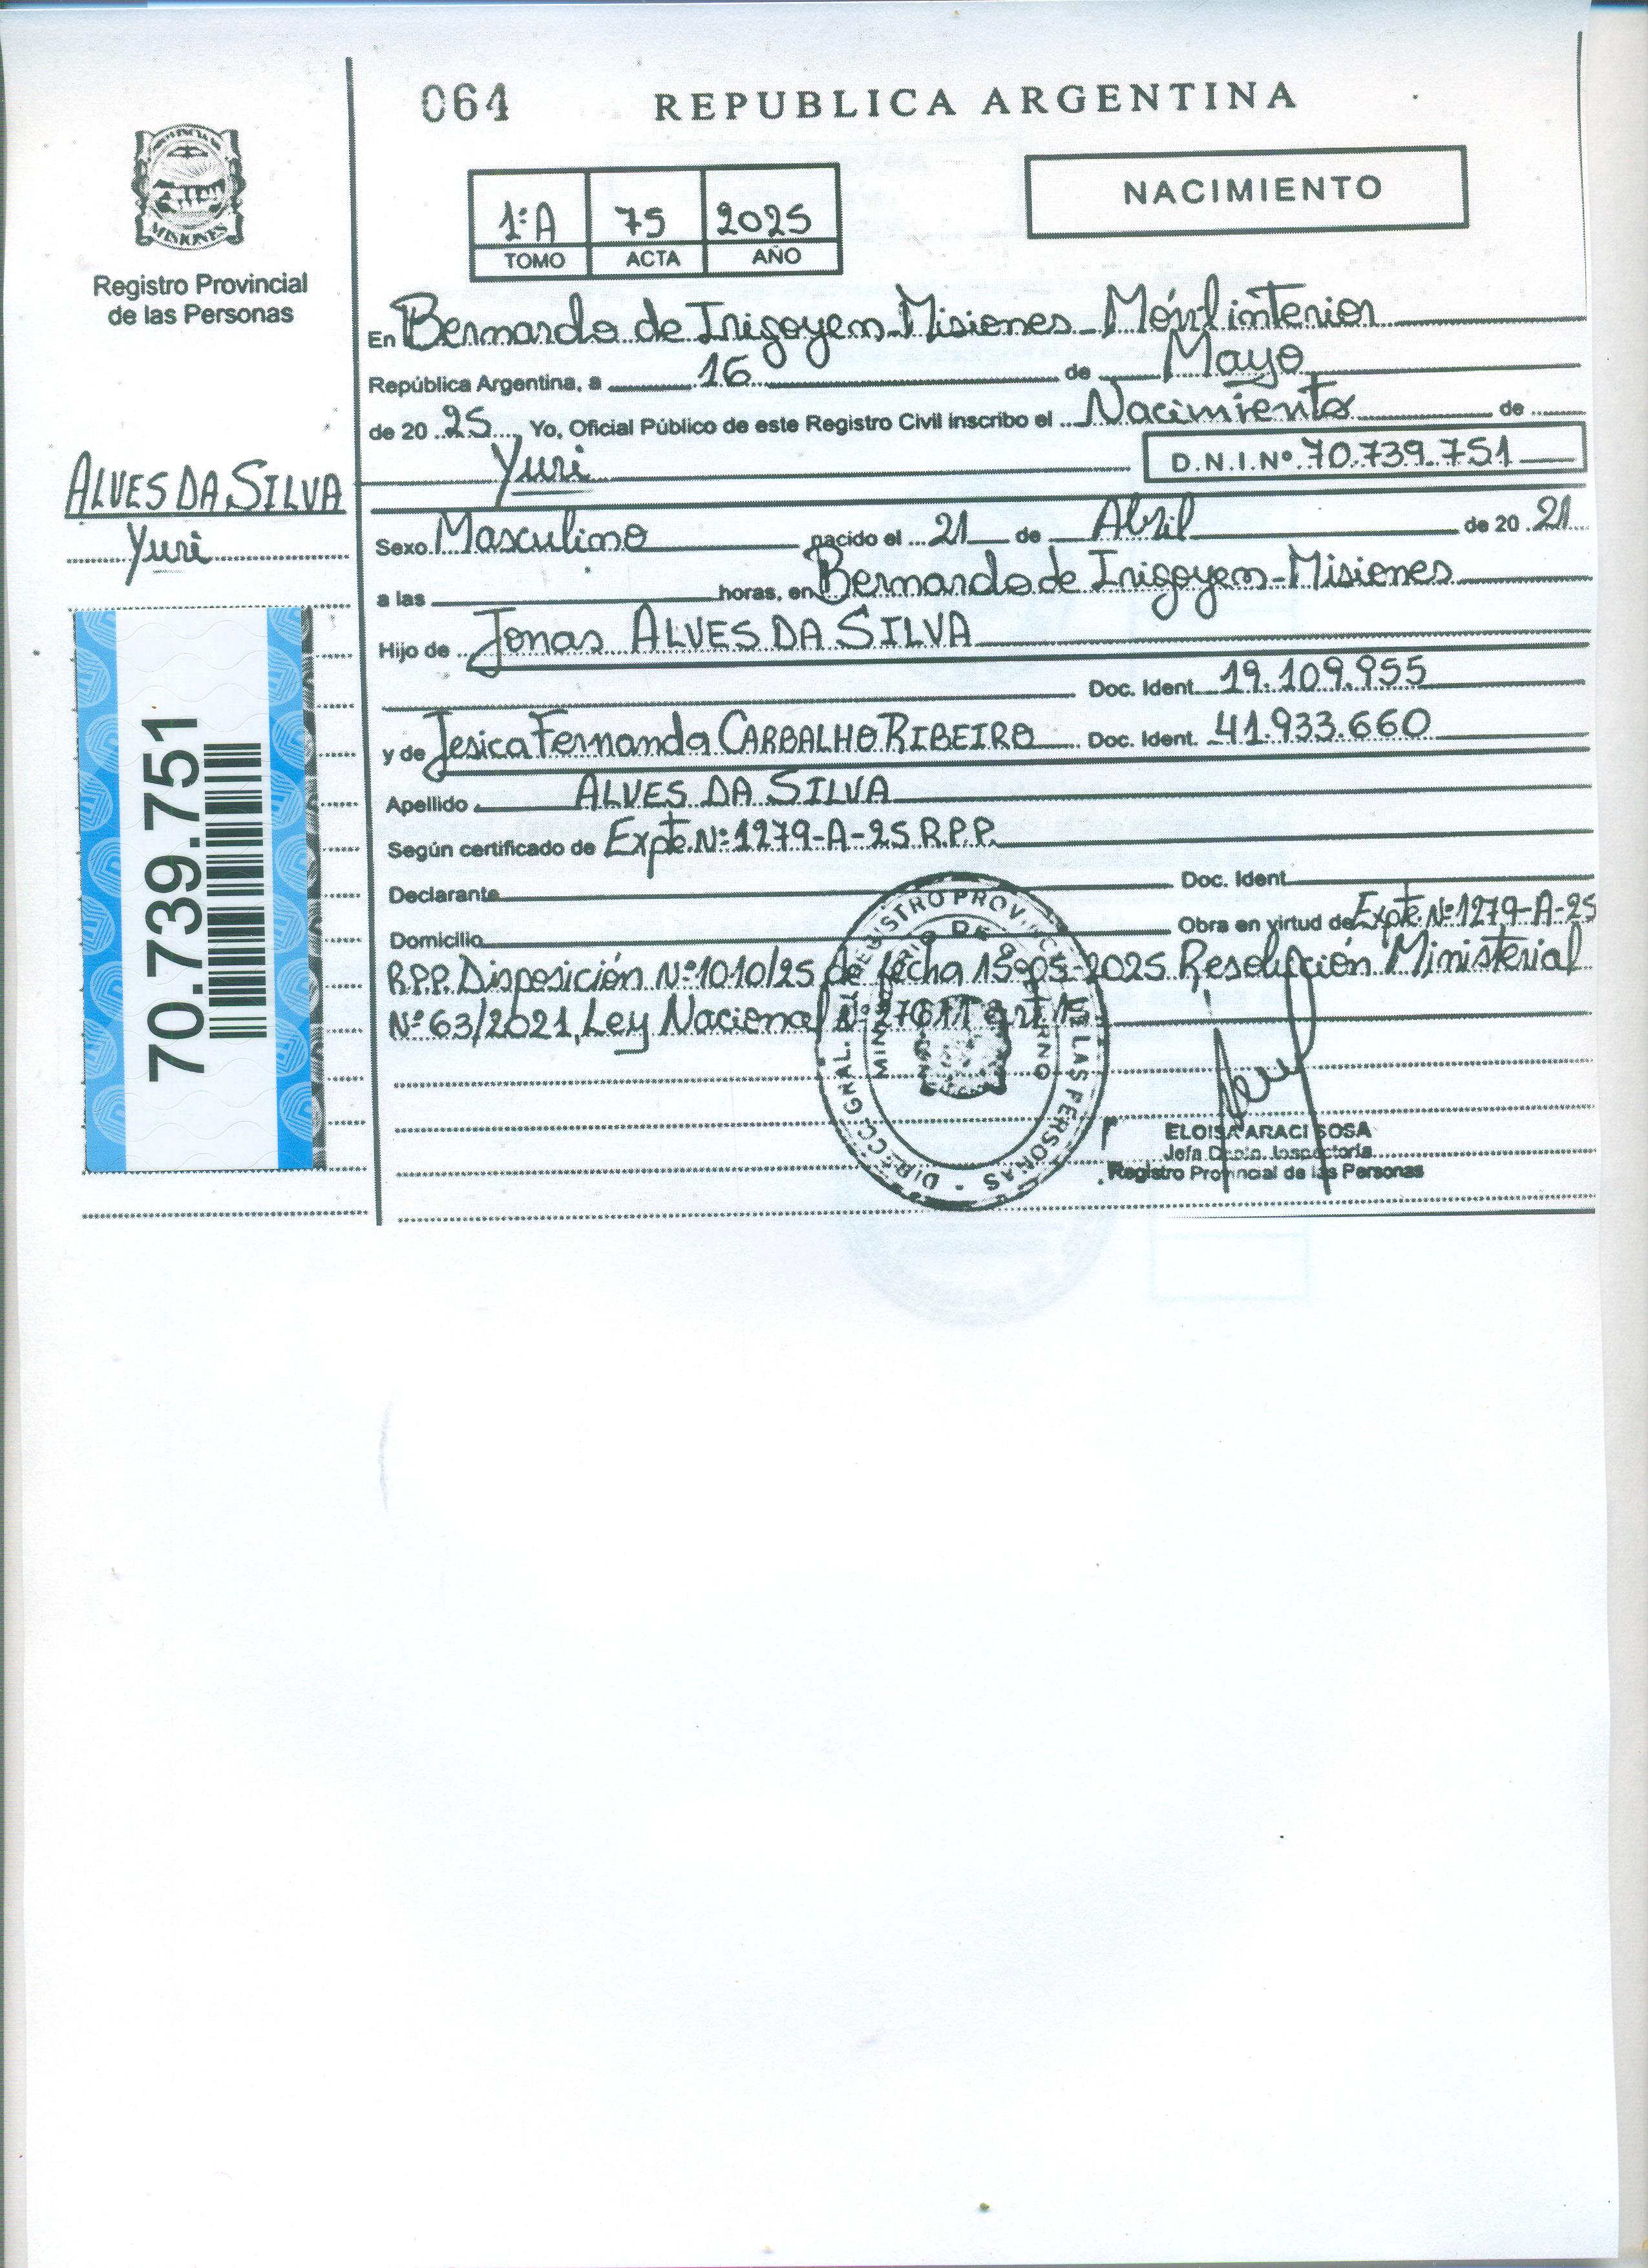 064 REPUBLICA ARGENTINA
NACIMIENTO
1ºA 75 2025
TOMO ACTA AÑO
MISIONES
Registro Provincial
de las Personas
En Bernardo de Irigoyen - Misiones - Móvil interior
República Argentina, a 16 de Mayo
de 20 25 Yo, Oficial Público de este Registro Civil inscribo el Nacimiento de
Yuri D.N.I.Nº 70.739.751
ALVES DA SILVA
Yuri
Sexo Masculino nacido el 21 de Abril de 20 21
a las horas, en Bernardo de Irigoyen - Misiones
Hijo de Jonas ALVES DA SILVA
Doc. Ident. 19.109.955
y de Jesica Fernanda CARBALHO RIBEIRO Doc. Ident. 41.933.660
Apellido ALVES DA SILVA
Según certificado de Expte. Nº 1279-A-25 R.P.P.
Declarante Doc. Ident.
Domicilio Obra en virtud de Expte. Nº 1279-A-25
R.P.P. Disposición Nº 1010/25 de fecha 15-05-2025 Resolución Ministerial
Nº 63/2021, Ley Nacional
70.739.751
DIRECC. GRAL. REGISTRO PROVINCIAL DE LAS PERSONAS
MINISTERIO DE GOBIERNO
ELOISA ARACI SOSA
Jefa Dpto. Inspectoría
Registro Provincial de las Personas